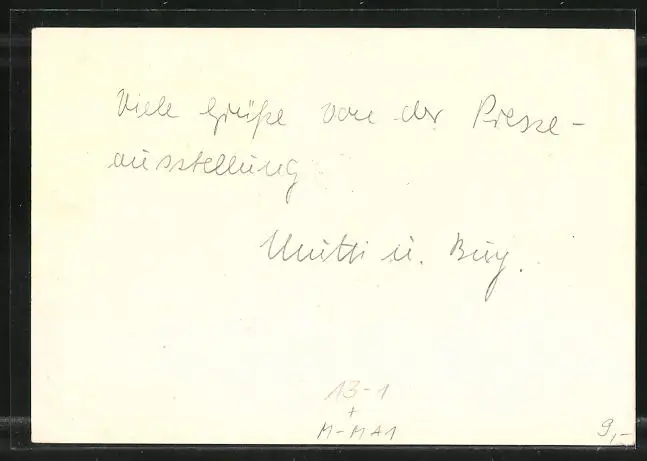 Viele Grüße von der Presse-
ausstellung
Mutti u.
13-1
+
M-MA1
9,-